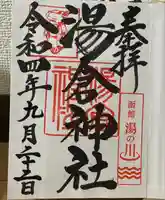 奉拝
函館
湯の川
湯倉神社
令和四年九月二十三日